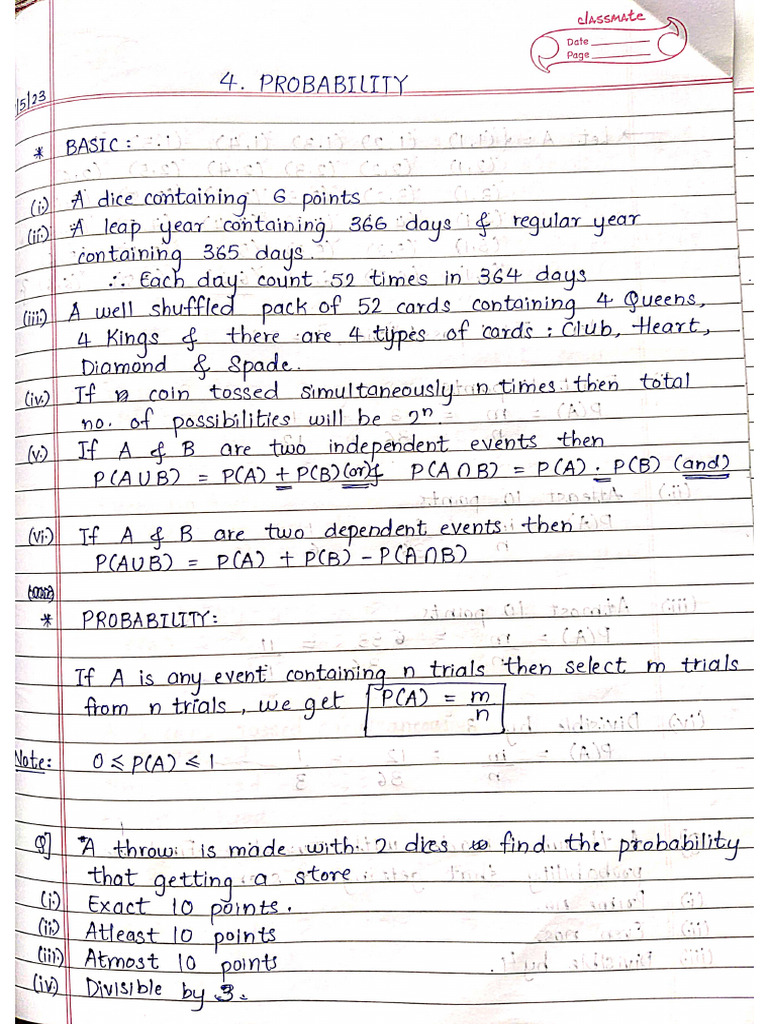 classmate
Date
Page
4. PROBABILITY
/5/23
* BASIC:
(i.) A dice containing 6 points
(ii.) A leap year containing 366 days & regular year
containing 365 days.
∴ Each day count 52 times in 364 days
(iii.) A well shuffled pack of 52 cards containing 4 Queens,
4 Kings & there are 4 types of cards: Club, Heart,
Diamond & Spade.
(iv.) If n coin tossed simultaneously n times then total
no. of possibilities will be 2ⁿ.
(v.) If A & B are two independent events then
P(A∪B) = P(A) + P(B) (or) & P(A∩B) = P(A) . P(B) (and)
(vi.) If A & B are two dependent events then
P(A∪B) = P(A) + P(B) - P(A∩B)
* PROBABILITY:
If A is any event containing n trials then select m trials
from n trials, we get P(A) = m/n
Note: 0 ≤ P(A) ≤ 1
Q] A throw is made with 2 dies find the probability
that getting a store
(i.) Exact 10 points.
(ii.) Atleast 10 points
(iii.) Atmost 10 points
(iv.) Divisible by 3.